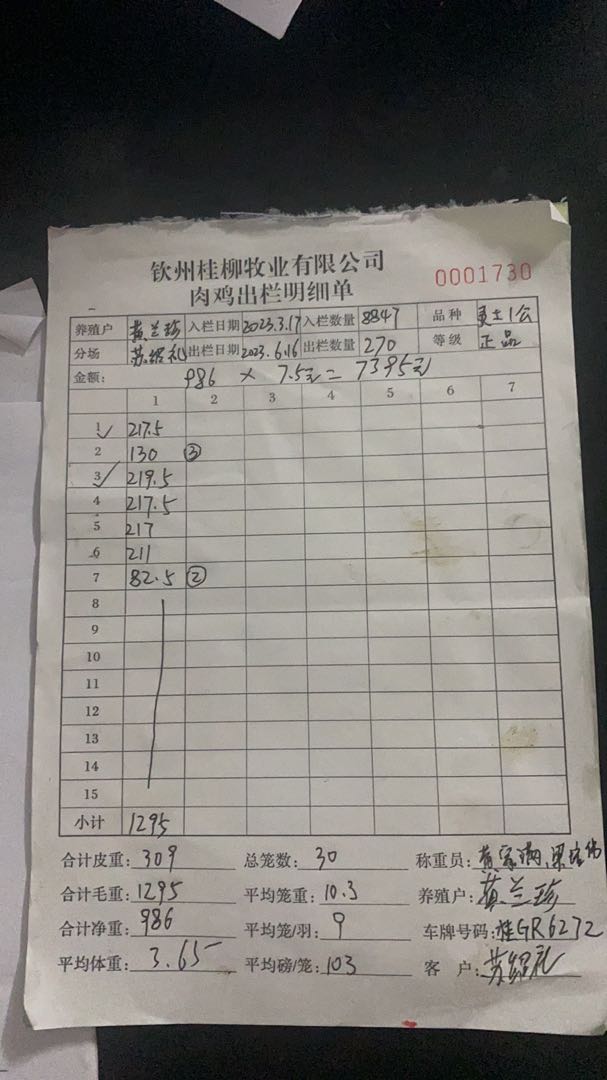 钦州桂柳牧业有限公司
肉鸡出栏明细单
0001730
养殖户 黄兰珍 入栏日期 2023.3.17 入栏数量 8847 品种
分场 苏绍礼 出栏日期 2023.6.16 出栏数量 270 等级 正品
金额: 986 × 7.5元 = 7395元
1 2 3 4 5 6 7
1 ✓ 217.5
2 130 ③
3 ✓ 219.5
4 217.5
5 217
6 211
7 82.5 ②
8
9
10
11
12
13
14
15
小计 1295
合计皮重: 309 总笼数: 30 称重员:
合计毛重: 1295 平均笼重: 10.3 养殖户: 黄兰珍
合计净重: 986 平均笼/羽: 9 车牌号码: 桂GR6272
平均体重: 3.65 平均磅/笼: 103 客 户: 苏绍礼